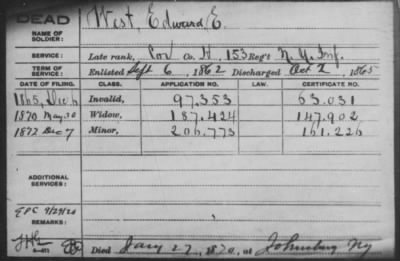 DEAD
NAME OF SOLDIER: West, Edward E.
SERVICE: Late rank, Cor Co. H, 153 Reg't N.Y. Inf.
TERM OF SERVICE: Enlisted Sept 6, 1862 Discharged Oct 2, 1865
DATE OF FILING. CLASS. APPLICATION NO. LAW. CERTIFICATE NO.
1865, Dec 6 Invalid, 97.353 63.031
1870 May.30 Widow, 187.424 147.902
1872 Dec 7 Minor, 206.773 161.226
ADDITIONAL SERVICES:
REMARKS:
Died Jany 27, 1870, at Johnsburg NY